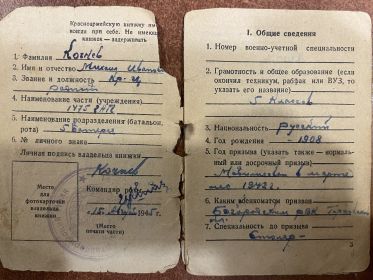 Красноармейскую книжку им
всегда при себе. Не имеющ
книжек — задерживать
1. Фамилия Кочнев
2. Имя и отчество Михаил Иванов
3. Звание и должность Кр-ец
4. Наименование части (учреждения)
1475
5. Наименование подразделения (батальон, рота) 5 батарея
6. № личного знака
Личная подпись владельца книжки
Кочнев
Место
для
фотокарточки
владельца
книжки
Командир
15 1945
(Место
печати части)
I. Общие сведения
1. Номер военно-учетной специальности
2. Грамотность и общее образование (если
окончил техникум, рабфак или ВУЗ, то
указать его название)
5 классов
3. Национальность русский
4. Год рождения -1908
5. Год призыва (указать также — нормаль-
ный или досрочный призыв)
в марте
1942 г.
6. Каким военкоматом призван
РВК
7. Специальность до призыва
Столяр-
3